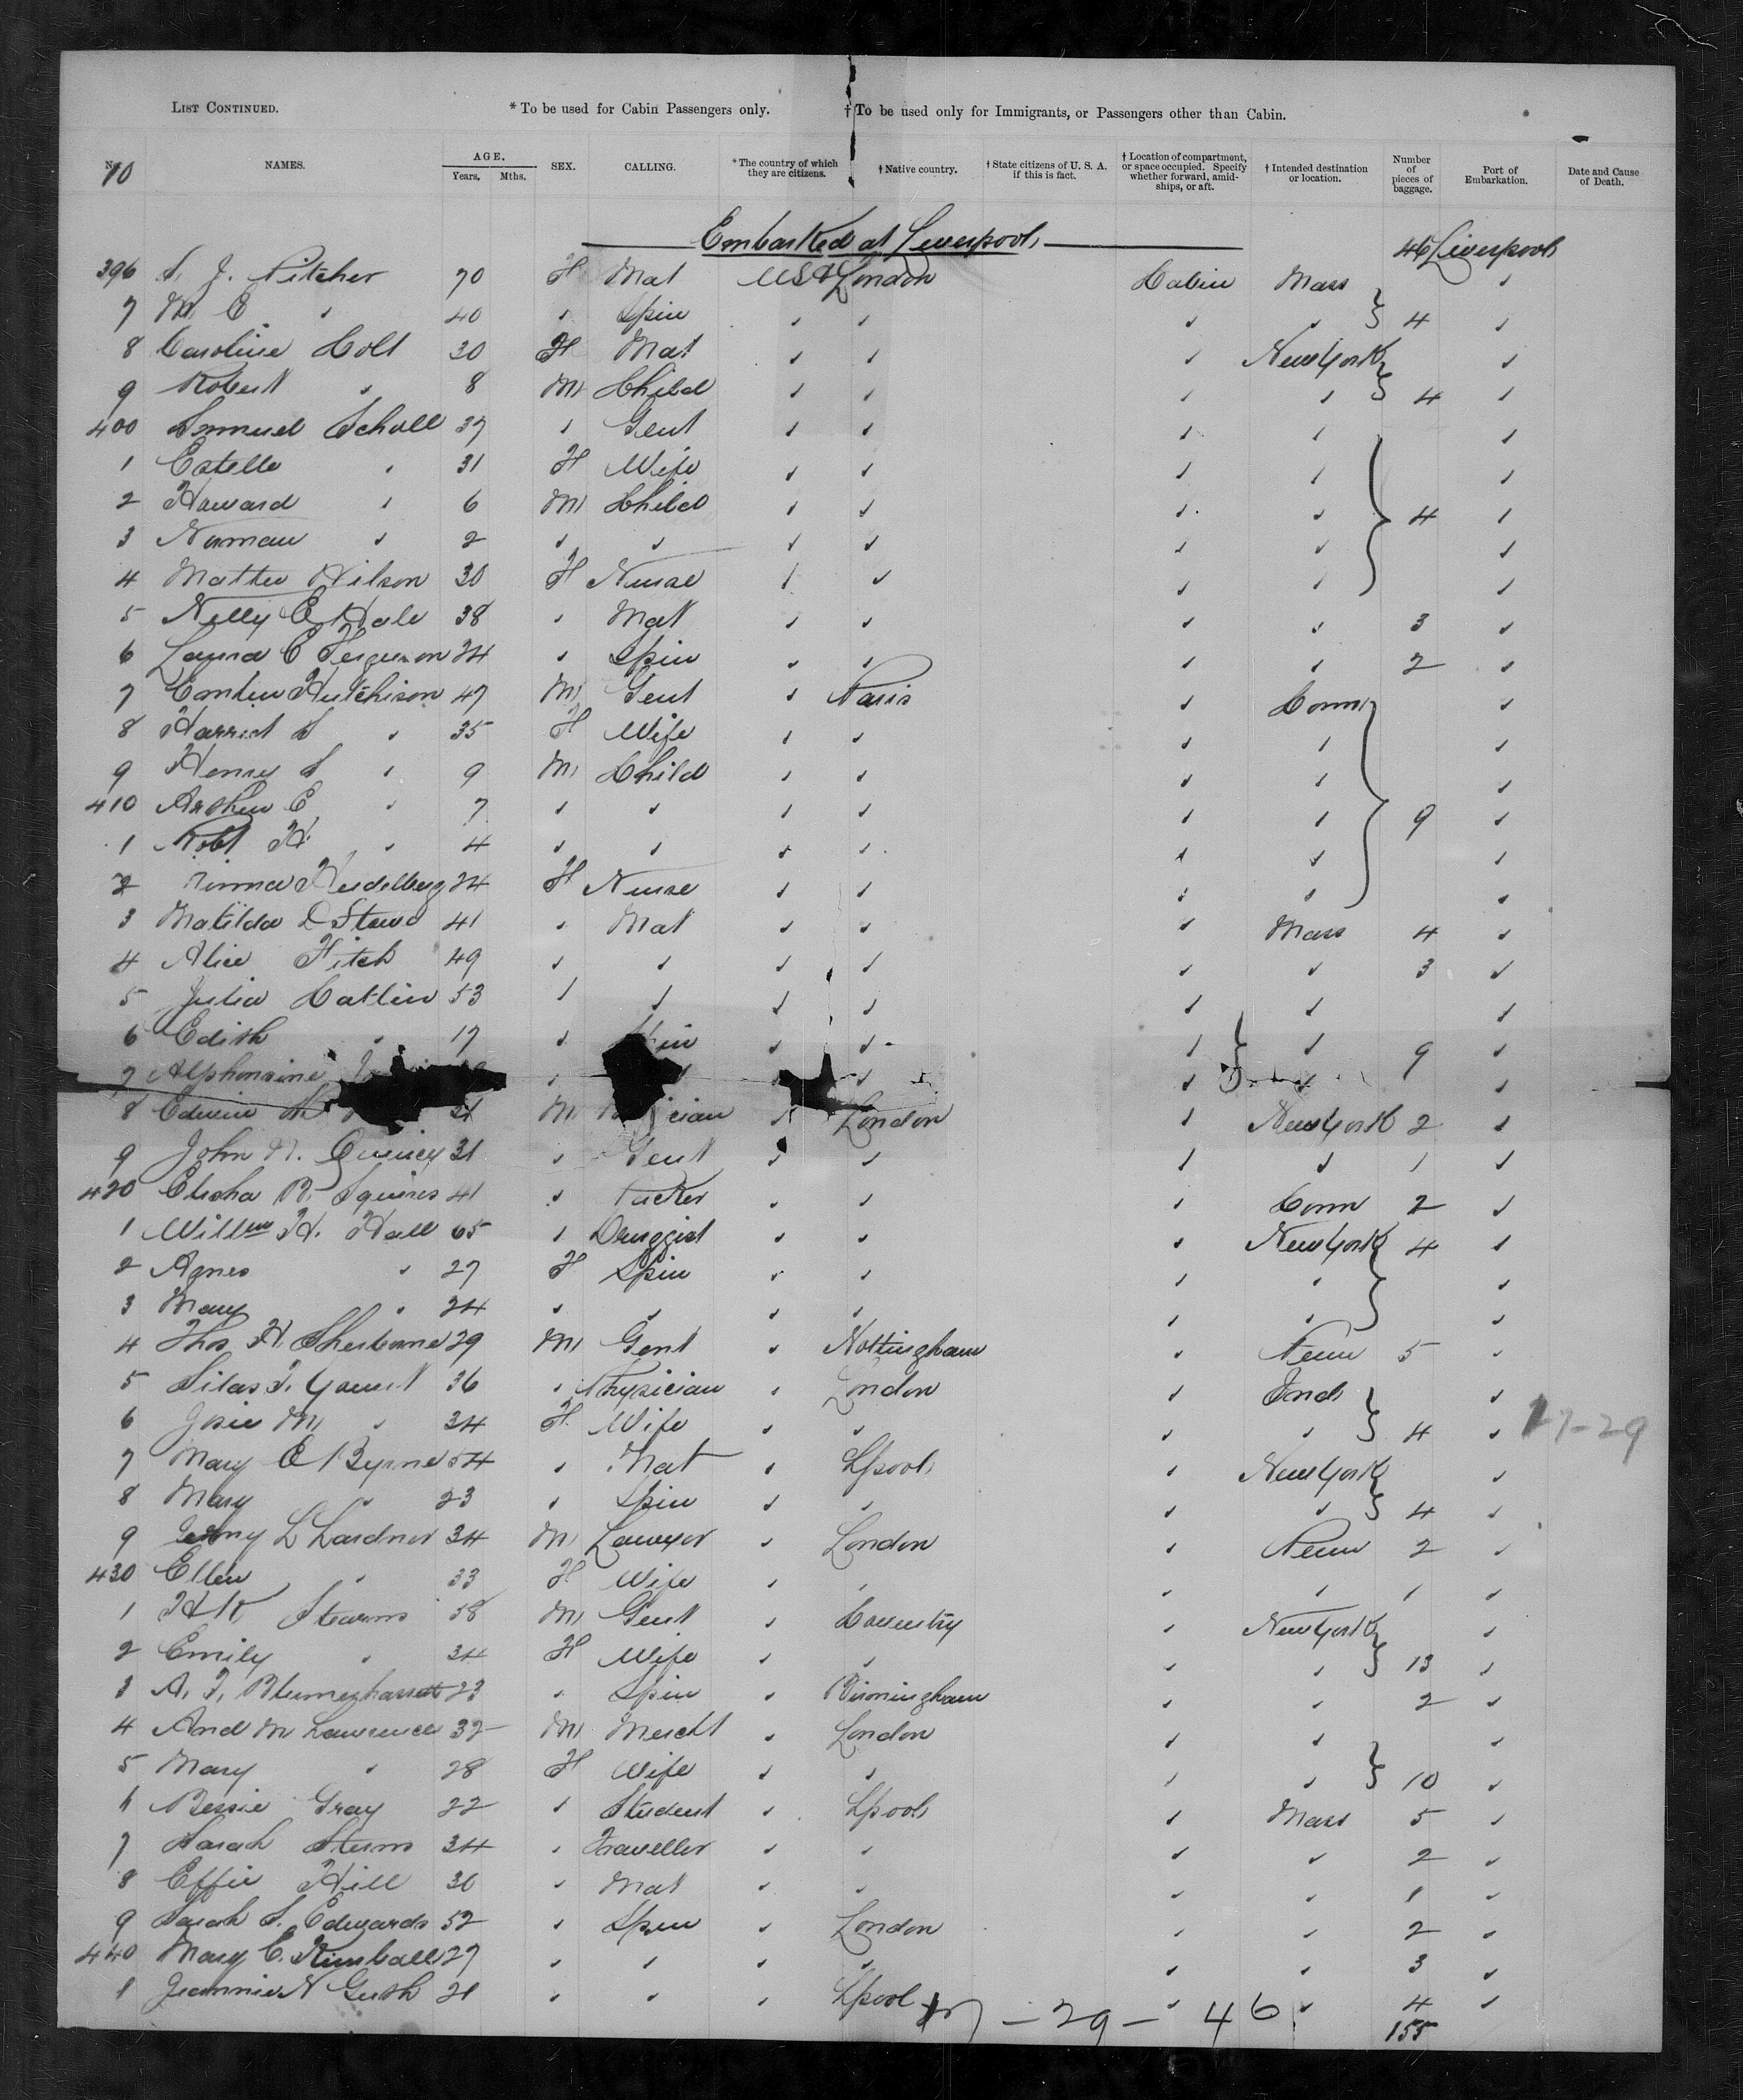 LIST CONTINUED. * To be used for Cabin Passengers only. † To be used only for Immigrants, or Passengers other than Cabin.
No. 10 NAMES. AGE. Years. Mths. SEX. CALLING. * The country of which they are citizens. † Native country. † State citizens of U. S. A. if this is fact. † Location of compartment, or space occupied. Specify whether forward, amidships, or aft. † Intended destination or location. Number of pieces of baggage. Port of Embarkation. Date and Cause of Death.
Embarked at Liverpool 46 Liverpool
396 S. J. Pitcher 70 F Mat USA London Cabin Mass "
7 M. E " 40 " Spin " " " " 4 "
8 Caroline Colt 30 F Mat " " " New York "
9 Robert " 8 M Child " " " " 4 "
400 Samuel Scholl 37 " Gent " " " " "
1 Estelle " 31 F Wife " " " " "
2 Howard " 6 M Child " " " " 4 "
3 Norman " 2 " " " " " " "
4 Mattie Wilson 30 F Nurse " " " " "
5 Nelly E Hale 38 " Mat " " " " 3 "
6 Laura C Ferguson 24 " Spin " " " " 2 "
7 Hutchison 47 M Gent " Paris " Conn "
8 Harriet S " 35 F Wife " " " " "
9 Henry S " 9 M Child " " " " "
410 Arthur E " 7 " " " " " " 9 "
1 Robt H " 4 " " " " " " "
2 Heidelberg 24 F Nurse " " " " "
3 Matilda D Stowe 41 " Mat " " " Mass 4 "
4 Alice Fitch 49 " " " " " " 3 "
5 Julia Catlin 53 " " " " " " "
6 Edith " 17 " " " " " 9 "
7 Alphonsine " " " " "
8 Edwin M London " New York 2 "
9 John W. Quincy 31 " Gent " " " " 1 "
420 Elisha B. Squires 41 " " " " Conn 2 "
1 Willm H. Hall 65 " Druggist " " " New York 4 "
2 Agnes " 27 F Spin " " " " "
3 Mary " 24 " " " " " " "
4 Thos H. Sherborne 29 M Gent " Nottingham " Penn 5 "
5 Silas T. Yount 36 " Physician " London " Ind "
6 Josie M " 34 F Wife " " " " 4 " 17-29
7 Mary E Byrne 54 " Mat " Lpool " New York "
8 Mary " 23 " Spin " " " " 4 "
9 L Lardner 34 M Lawyer " London " Penn 2 "
430 Ellen " 33 F Wife " " " " 1 "
1 Stearns 58 M Gent " Coventry " New York "
2 Emily " 34 F Wife " " " " 13 "
3 A. T. 23 " Spin " Birmingham " " 2 "
4 And M Lawrence 32 M Mercht " London " " "
5 Mary " 28 F Wife " " " " 10 "
6 Bessie Gray 22 " Student " Lpool " Mass 5 "
7 Sarah Sterns 34 " Traveller " " " " 2 "
8 Effie Hill 30 " Mat " " " " 1 "
9 Sarah S. Edwards 52 " Spin " London " " 2 "
440 Mary C. Kimball 27 " " " " " " 3 "
1 Jeannie N 21 " " " Lpool " " 4 "
17 - 29 - 46 155